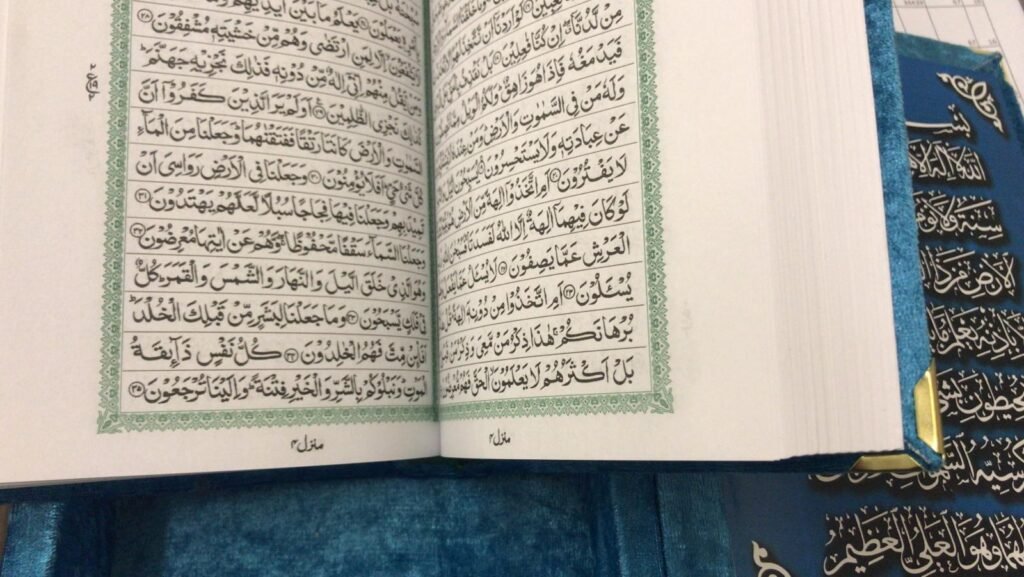 لَوْ اَرَدْنَاۤ اَنْ نَّتَّخِذَ
مِنْ لَّدُنَّاۤ اِنْ كُنَّا فٰعِلِيْنَ ۝۱۷ بَلْ نَقْذِفُ
فَيَدْمَغُهٗ فَاِذَا هُوَ زَاهِقٌ وَلَكُمُ الْوَيْلُ
وَلَهٗ مَنْ فِي السَّمٰوٰتِ وَالْاَرْضِ وَمَنْ عِنْدَهٗ
عَنْ عِبَادَتِهٖ وَلَا يَسْتَحْسِرُوْنَ ۝۱۹ يُسَبِّحُوْنَ الَّيْلَ
لَا يَفْتُرُوْنَ ۝۲۰ اَمِ اتَّخَذُوْۤا اٰلِهَةً مِّنَ الْاَرْضِ
لَوْ كَانَ فِيْهِمَاۤ اٰلِهَةٌ اِلَّا اللّٰهُ لَفَسَدَتَا فَسُبْحٰنَ
الْعَرْشِ عَمَّا يَصِفُوْنَ ۝۲۲ لَا يُسْـَٔلُ عَمَّا يَفْعَلُ
يُسْـَٔلُوْنَ ۝۲۳ اَمِ اتَّخَذُوْا مِنْ دُوْنِهٖۤ اٰلِهَةً قُلْ
بُرْهَانَكُمْ هٰذَا ذِكْرُ مَنْ مَّعِيَ وَذِكْرُ مَنْ
بَلْ اَكْثَرُهُمْ لَا يَعْلَمُوْنَ الْحَقَّ فَهُمْ
منزل ۴
يَعْمَلُوْنَ ۝۲۷ يَعْلَمُ مَا بَيْنَ اَيْدِيْهِمْ
يَشْفَعُوْنَ اِلَّا لِمَنِ ارْتَضٰى وَهُمْ مِّنْ خَشْيَتِهٖ مُشْفِقُوْنَ ۝۲۸
وَمَنْ يَّقُلْ مِنْهُمْ اِنِّيْۤ اِلٰهٌ مِّنْ دُوْنِهٖ فَذٰلِكَ نَجْزِيْهِ جَهَنَّمَ
كَذٰلِكَ نَجْزِي الظّٰلِمِيْنَ ۝۲۹ اَوَلَمْ يَرَ الَّذِيْنَ كَفَرُوْۤا اَنَّ
السَّمٰوٰتِ وَالْاَرْضَ كَانَتَا رَتْقًا فَفَتَقْنٰهُمَا وَجَعَلْنَا مِنَ الْمَآءِ
كُلَّ شَيْءٍ حَيٍّ اَفَلَا يُؤْمِنُوْنَ ۝۳۰ وَجَعَلْنَا فِي الْاَرْضِ رَوَاسِيَ اَنْ
تَمِيْدَ بِهِمْ وَجَعَلْنَا فِيْهَا فِجَاجًا سُبُلًا لَّعَلَّهُمْ يَهْتَدُوْنَ ۝۳۱
وَجَعَلْنَا السَّمَآءَ سَقْفًا مَّحْفُوْظًا وَّهُمْ عَنْ اٰيٰتِهَا مُعْرِضُوْنَ ۝۳۲
وَهُوَ الَّذِيْ خَلَقَ الَّيْلَ وَالنَّهَارَ وَالشَّمْسَ وَالْقَمَرَ كُلٌّ
فِيْ فَلَكٍ يَّسْبَحُوْنَ ۝۳۳ وَمَا جَعَلْنَا لِبَشَرٍ مِّنْ قَبْلِكَ الْخُلْدَ
اَفَا۟ئِنْ مِّتَّ فَهُمُ الْخٰلِدُوْنَ ۝۳۴ كُلُّ نَفْسٍ ذَآىِٕقَةُ
الْمَوْتِ وَنَبْلُوْكُمْ بِالشَّرِّ وَالْخَيْرِ فِتْنَةً وَاِلَيْنَا تُرْجَعُوْنَ ۝۳۵
منزل ۴
اللّٰهُ لَا اِلٰهَ
سِنَةٌ وَّلَا نَوْمٌ
الْاَرْضِ مَنْ ذَا
بِاِذْنِهٖ يَعْلَمُ
يُحِيْطُوْنَ بِشَيْ
كُرْسِيُّهُ السَّمٰوٰتِ
وَهُوَ الْعَلِيُّ الْعَظِيْمُ